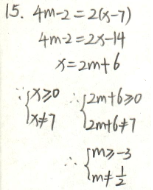 15. 4m-2=2(x-7)
4m-2=2x-14
x=2m+6
∵{x≥0 ∴{2m+6≥0
x≠7 2m+6≠7
∴{m≥-3
m≠1/2